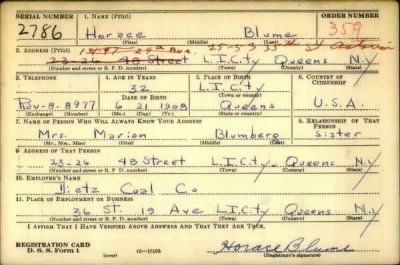 SERIAL NUMBER 1. NAME (Print) ORDER NUMBER
2786 Horace Blume 359
(First) (Middle) (Last)
2. ADDRESS (Print)
23-26 48 Street L.I.City Queens N.Y
(Number and street or R. F. D. number) (Town) (County) (State)
3. TELEPHONE 4. AGE IN YEARS 5. PLACE OF BIRTH 6. COUNTRY OF CITIZENSHIP
32 L.I.City
DATE OF BIRTH (Town or county)
Rav-8-8977 6 21 1908 Queens U.S.A.
(Exchange) (Number) (Mo.) (Day) (Yr.) (State or country)
7. NAME OF PERSON WHO WILL ALWAYS KNOW YOUR ADDRESS 8. RELATIONSHIP OF THAT PERSON
Mrs. Marion Blumberg sister
(Mr., Mrs., Miss) (First) (Middle) (Last)
9. ADDRESS OF THAT PERSON
23-26 48 Street L.I.City Queens N.Y
(Number and street or R. F. D. number) (Town) (County) (State)
10. EMPLOYER'S NAME
Dietz Coal Co
11. PLACE OF EMPLOYMENT OR BUSINESS
36 St. 19 Ave L.I.City Queens N.Y
(Number and street or R. F. D. number) (Town) (County) (State)
I AFFIRM THAT I HAVE VERIFIED ABOVE ANSWERS AND THAT THEY ARE TRUE.
REGISTRATION CARD
D. S. S. Form 1 16—17105 Horace Blume
(over) (Registrant's signature)